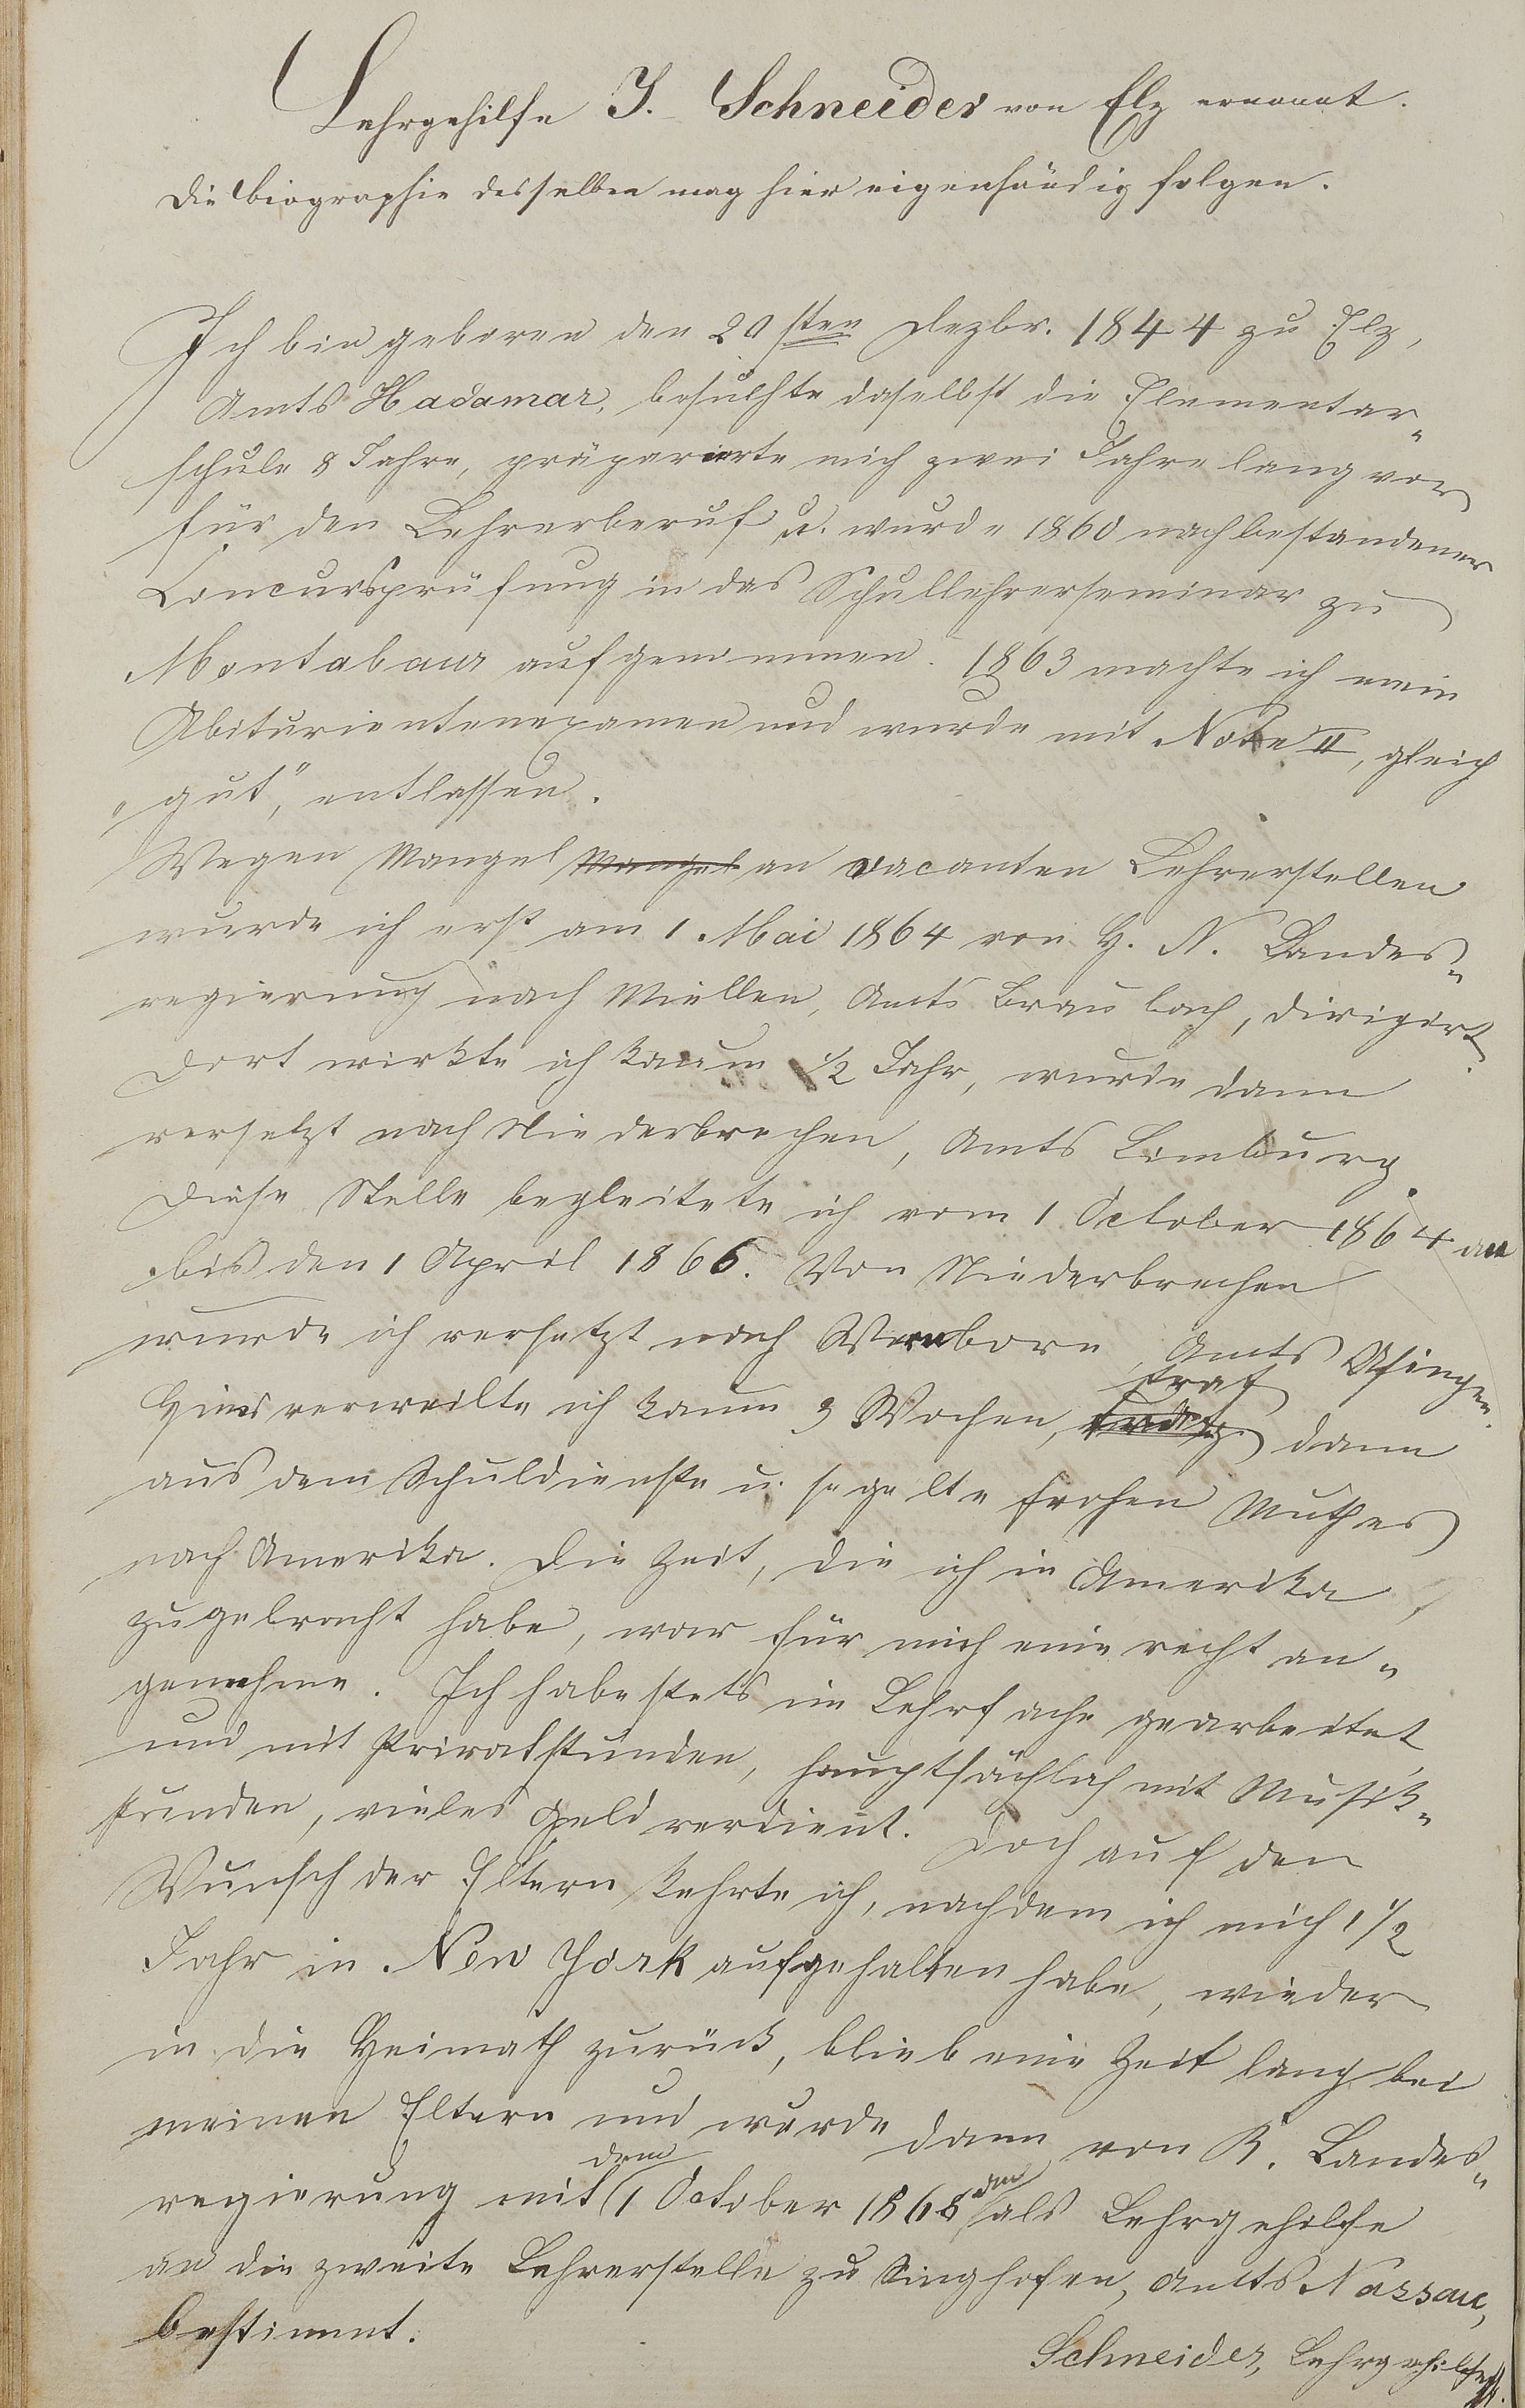 Lehrgehilfe J. Schneider von Elz ernannt.
Die Biographie desselben mag hier eigenhändig folgen.
Ich bin geboren den 20sten Dezbr. 1844 zu Elz,
Amts Hadamar, besuchte daselbst die Elementar-
schule 8 Jahre, präparierte mich zwei Jahre lang vor
für den Lehrerberuf u. wurde 1860 nach bestandener
Concursprüfung in das Schullehrerseminar zu
Montabaur aufgenommen. 1863 machte ich mein
Abiturientenexamen und wurde mit Note II, gleich
„gut“, entlassen.
Wegen Mangel Mangel an vacanten Lehrerstellen
wurde ich erst am 1. Mai 1864 von H. N. Landes-
regierung nach Miellen, Amts Braubach, dirigirt.
Dort wirkte ich kaum 1/2 Jahr, wurde dann
versetzt nach Niederbrechen, Amts Limburg.
Diese Stelle begleitete ich vom 1 October 1864 an
bis den 1 April 1866. Von Niederbrechen
wurde ich versetzt nach Wernborn, Amts Usingen.
Hier verweilte ich kaum 3 Wochen, trat dann
aus dem Schuldienste u. segelte frohen Muthes
nach Amerika. Die Zeit, die ich in Amerika
zugebracht habe, war für mich eine recht an-
genehme. Ich habe stets im Lehrfache gearbeitet
und mit Privatstunden, hauptsächlich mit Musik-
stunden, vieles Geld verdient. Doch auf den
Wunsch der Eltern kehrte ich, nachdem ich mich 1 1/2
Jahr in New York aufgehalten habe, wieder
in die Heimath zurück, blieb eine Zeit lang bei
meinen Eltern und wurde dann von K. Landes-
regierung mit dem 1 October 1868 als Lehrgehilfe
an die zweite Lehrerstelle zu Singhofen, Amts Nassau,
bestimmt.
Schneider, Lehrgehilfe